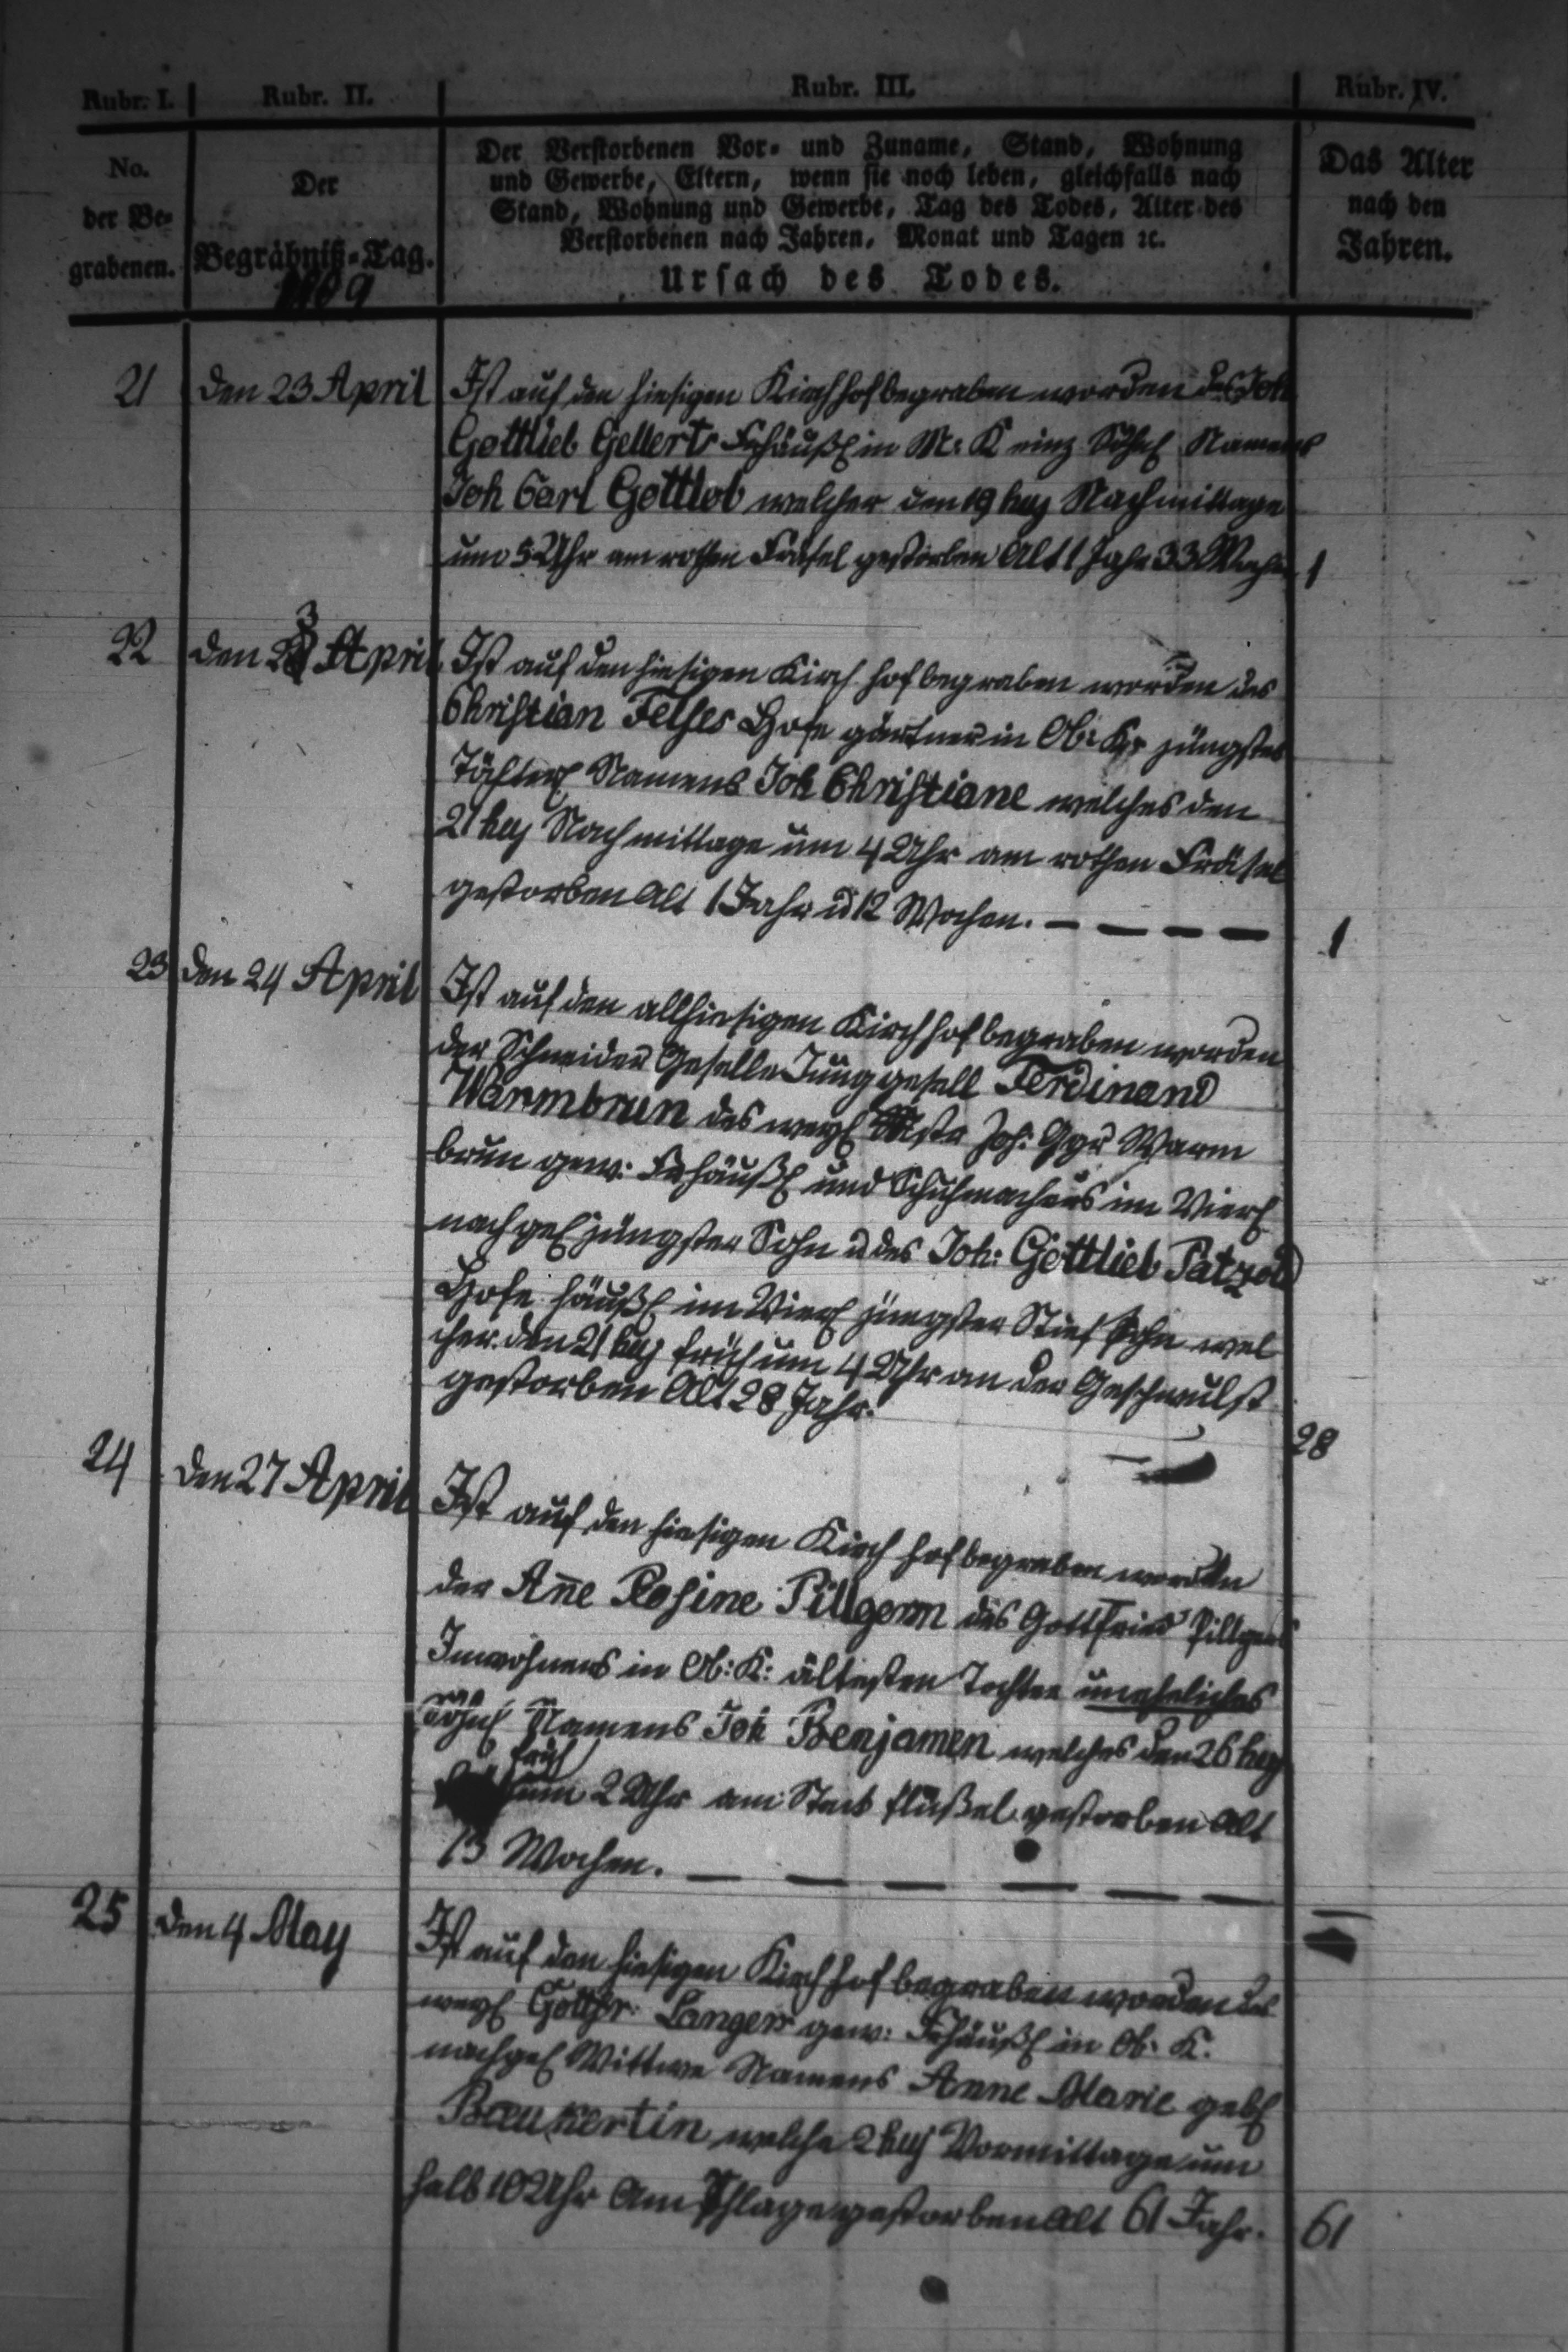 Rubr. I. Rubr. II. Rubr. III. Rubr. IV.
No.
der Be-
grabenen.
Der
Begräbniß-Tag.
Der Verstorbenen Vor- und Zuname, Stand, Wohnung
und Gewerbe, Eltern, wenn sie noch leben, gleichfalls nach
Stand, Wohnung und Gewerbe, Tag des Todes, Alter des
Verstorbenen nach Jahren, Monat und Tagen ꝛc.
Ursach des Todes.
Das Alter
nach den
Jahren.
21 den 23 April Ist auf den hiesigen Kirchhof begraben worden des Joh
Gottlieb Gellerts Frhäußl in M: K einz Söhnl Namens
Joh Carl Gottlob welcher den 19 huj Nachmittage
um 5 Uhr am rothen Friesel gestorben Alt 1 Jahr 33 Wochen 1
22 den 23 April Ist auf den hiesigen Kirch hof begraben worden des
Christian Felses Hofe gärtner in Ob: K jüngstes
Töchterl Namens Joh Christiane welches den
21 huj Nachmittage um 4 Uhr am rothen Friesel
gestorben Alt 1 Jahr u 12 Wochen. 1
23 den 24 April Ist auf den allhiesigen Kirchhof begraben worden
der Schneider Geselle Junggesell Ferdinand
Warmbrun des weyl Mstr Joh: Warm
brun gew: Frhäußl und Schuhmachers im Vierl
nachgel jüngster Sohn u des Joh: Gottlieb Patzold
Hofe häußl im Vierl jüngster Stief Sohn wel
cher den 21 huj früh um 4 Uhr an der Geschwulst
gestorben Alt 28 Jahr. 28
24 den 27 April Ist auf den hiesigen Kirch hof begraben worden
der Añe Rosine Pillgerin des Gottfried Pillgers
Inwohners in Ob: K: ältesten Tochter uneheliches
Söhnl Namens Joh Benjamen welches den 26 huj
früh
um 2 Uhr am Steck flüßel gestorben Alt
13 Wochen.
25 den 4 May Ist auf den hiesigen Kirchhof begraben worden des
weyl Gottfr: Langers gew: Frhäußl in Ob: K.
nachgel Wittwe Namens Anne Marie gebl
welche 2 huj Vormittage um
halb 10 Uhr Am Schlage gestorben Alt 61 Jahr. 61